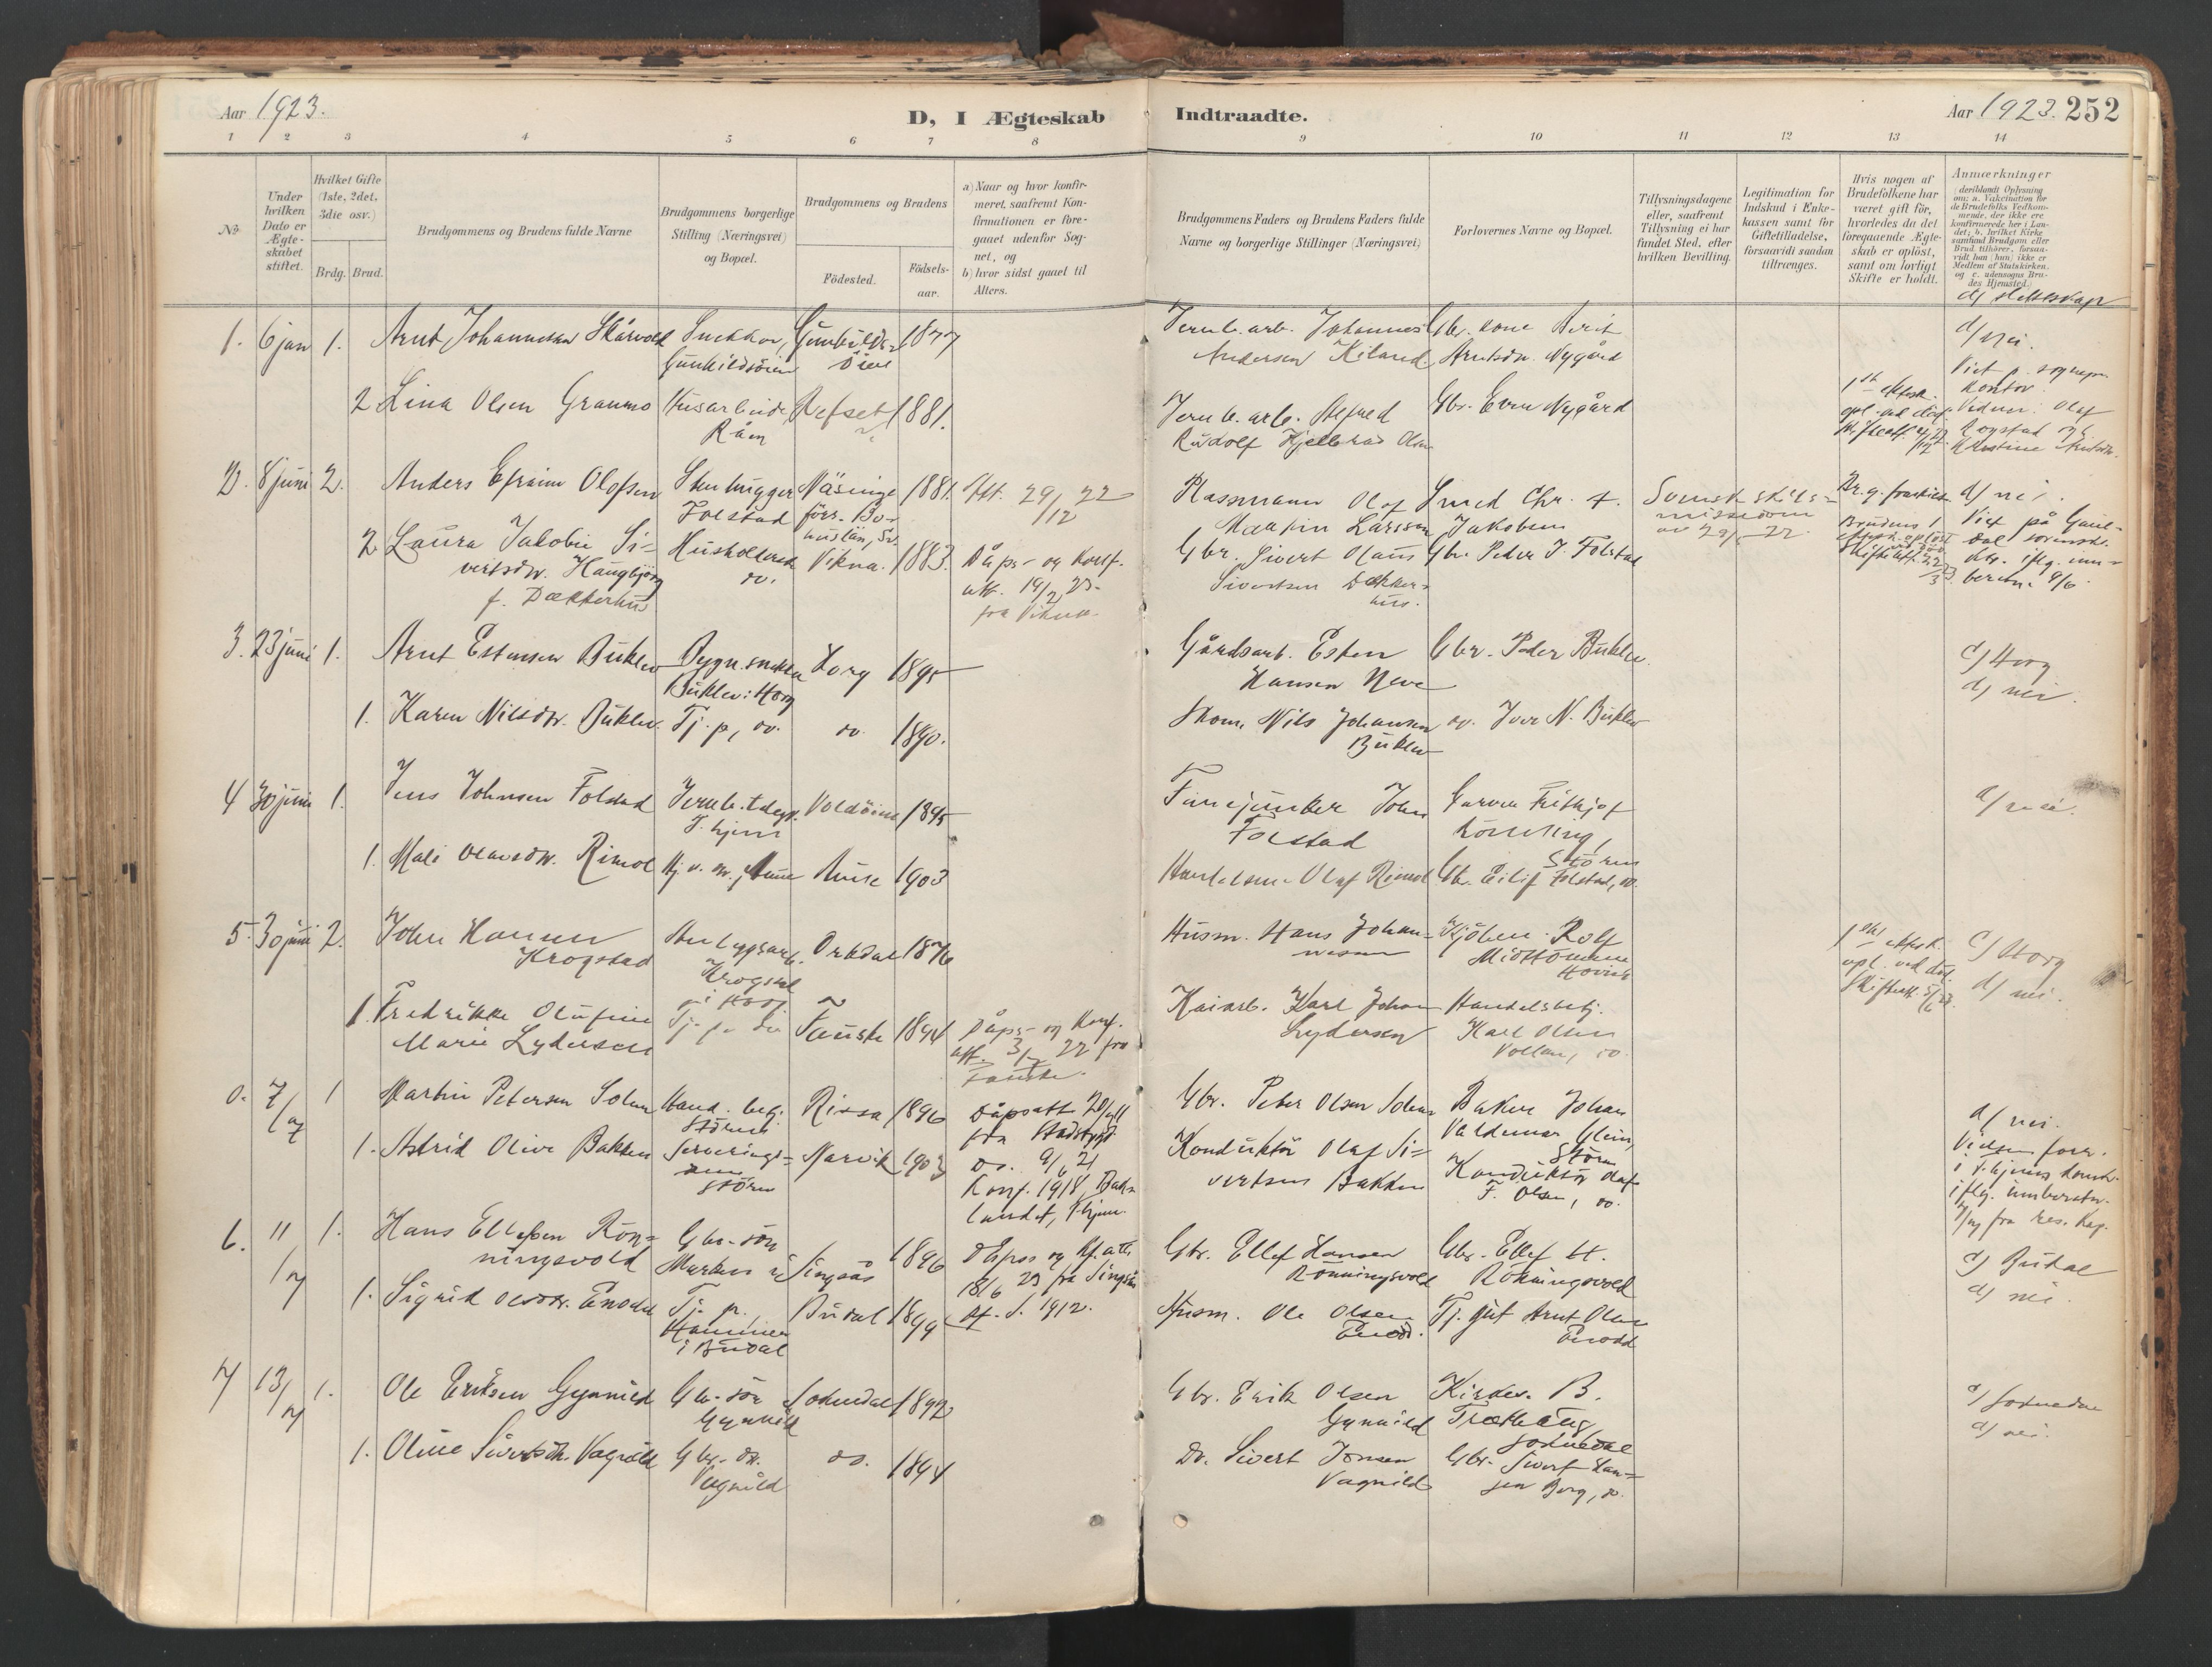 Aar 1923.
D, I Ægteskab Indtraadte.
Aar 1923. 252
1 2 3 4 5 6 7 8 9 10 11 12 13 14
No
Under hvilken Dato er Ægteskabet stiftet.
Hvilket Gifte (1ste, 2det, 3die osv.)
Brdg. Brud.
Brudgommens og Brudens fulde Navne
Brudgommens borgerlige Stilling (Næringsvei) og Bopæl.
Brudgommens og Brudens
Fødested.
Fødselsaar.
a) Naar og hvor konfirmeret, saafremt Konfirmationen er foregaaet udenfor Sognet, og
b) hvor sidst gaaet til Alters.
Brudgommens Faders og Brudens Faders fulde Navne og borgerlige Stillinger (Næringsvei)
Forlovernes Navne og Bopæl.
Tillysningsdagene eller, saafremt Tillysning ei har fundet Sted, efter hvilken Bevilling.
Legitimation for Indskud i Enkekassen samt for Giftetilladelse, forsaavidt saadan tiltrænges.
Hvis nogen af Brudefolkene har været gift før, hvorledes da det foregaaende Ægteskab er opløst, samt om lovligt Skifte er holdt.
Anmærkninger (deriblandt Oplysning om: a. Vakcination for de Brudefolks Vedkommende, der ikke ere konfirmerede her i Landet; b. hvilket Kirkesamfund Brudgom eller Brud tilhører, forsaavidt han (hun) ikke er Medlem af Statskirken, og c. udensogns Brudes Hjemsted.)
d) slektskap
1. 6 jan 1. Arnt Johannesen Skårvold Snekker, Gunhildsöien Gunhilds- öien 1877
Jernb.arb. Johannes Andersen Kiland
Gbr. kone Berit Arntsdr. Nygård
d/ nei.
Viet p. sognepr. kontor.
2 Lina Olsen Granmo Husarbeide Råen Refset 1881.
Jernb.arb. Alfred Rudolf Hjellerås Olsen
Gbr. Even Nygård
2. 8 juni 2. Anders Efraim Olofsen Stenhugger Folstad Näsinge förs. Bohuslän, Sv. 1881. Att. 29/12 22
Olof Martin Larsson
Smed Chr. Jakobsen
Svensk skilsmisse
d/ nei.
Viet på Gauldal sorenskr. ktr. iflg. innberetn. 9/6
2 Laura Jakobie Sivertsdr. Haugbjörg f. Dækkerhus Husholderske do. Vikna. 1883. Dåps- og Konf. att. 19/2 23. fra Vikna.
Gbr. Sivert Olaus Sivertsen Dækkerhus.
Gbr. Peder J. Folstad
3. 23 juni 1. Arnt Estensen Buklev Bygn.snekker Buklev: Horg Horg 1895
Gårdsarb. Esten Hansen Neve
Gbr. Peder Buklev.
c) Horg
d) nei.
1. Karen Nilsdr. Buklev. Tj.p, do. do 1890.
Skom. Nils Johansen Buklev
do. Iver N. Buklev
4 30 juni 1. Jens Johnsen Folstad Jernb.telegr. T.hjem Voldöien 1895
Fanejunker John Folstad
Garver Fritkjof Könsling, Stören
d/ nei.
1. Mali Olavsdr. Rimol Hj. v. mor, Aune Aune 1903
Handelsm. Olaf Rimol
Gbr. Eilif Folstad, do.
5. 30 juni 2. John Hansen Krogstad Krogstad i Horg Orkdal 1876
Husm. Hans Johannesen
Kjöbm. Rolf Midttömme Hovin
1ste ektesk. opl. ved död. Skifteatt. 5/6 23.
c) Horg
d) nei.
1. Fredrikke Olufine Marie Lydersen Tj. p. do Fauske 1894 Dåps- og Konf. att. 3/7 22 fra Fauske.
Kaiarb. Karl Johan Lydersen
Handelsbetj. Karl Olsen Vollan, do.
0. 7/7 1 Martin Petersen Solem Hand. betj. Stören Rissa 1896 Dåpsatt. 20/4 11 fra Stadsbygd
Gbr. Peter Olsen Solem
Baker Johan Valdemar Glein, Stören
d/ nei.
1. Astrid Olive Bakken Serveringsdame Stören Narvik 1903 Do. 9/6 21 Konf. 1918 Bakklandet, T.hjem.
Konduktör Olaf Sivertsen Bakken
Konduktör Olaf F. Olsen, do.
6. 11/7 1. Hans Ellefsen Rönningsvold Gbr. sön Singsås 1896 Dåps og Kf. att. 18/6 23 fra Singsås
Gbr. Ellef Hansen Rönningsvold
Gbr. Ellef H. Rönningsvold
c) Budal
d) nei.
1. Sigrid Olsdr. Enodd Tj. p. i Budal Budal 1899
Husm. Ole Olsen Enodd.
Tj. gut Arnt Olsen Enodd
7 13/7 1. Ole Eriksen Gynnild Gbr-sön Gynnild Soknedal 1892
Gbr. Erik Olsen Gynnild
Kirkes. B. Træthaug Soknedal
c) Soknedal
d) nei.
1. Oline Sivertsdtr. Vagnild Gbr. dr. Vagnild do. 1894
Do. Sivert Jonsen Vagnild
Gbr. Sivert Hansen Borg, do.